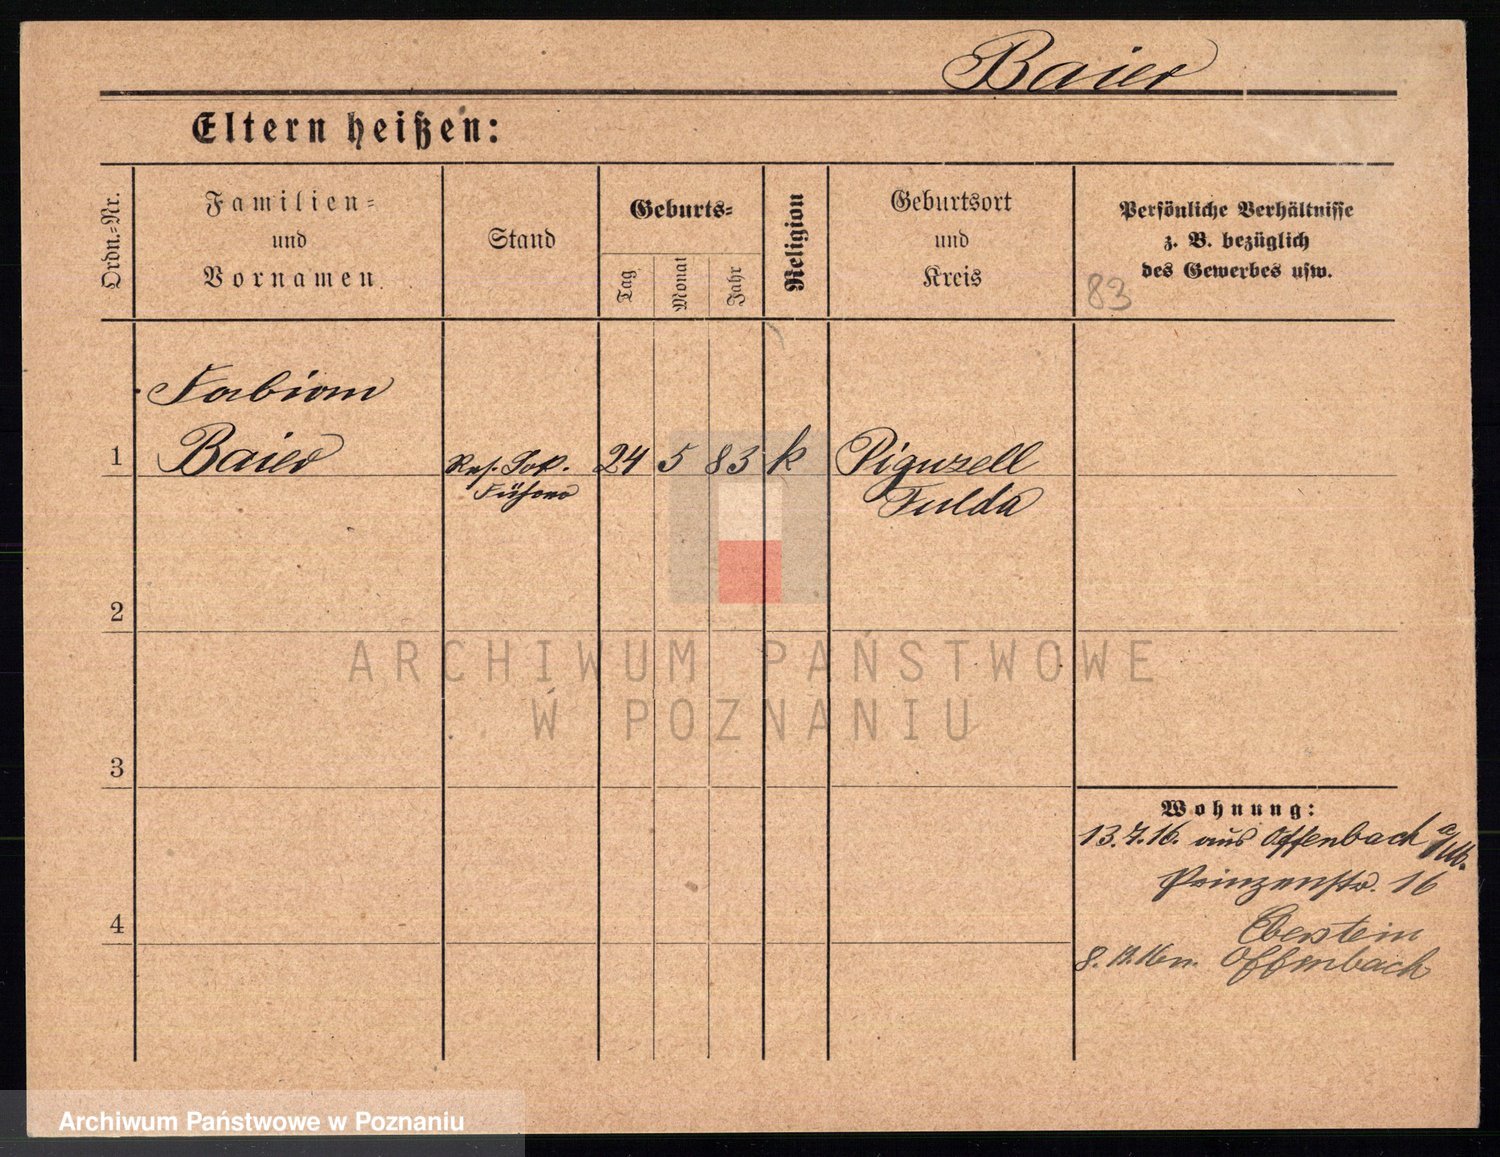 Baier
Eltern heißen:
Ordn.-Nr.
Familien-
und
Vornamen
Stand
Geburts-
Tag
Monat
Jahr
Religion
Geburtsort
und
Kreis
Persönliche Verhältnisse
z. B. bezüglich
des Gewerbes usw.
83
Fabian
1 Baier Res. Lok. 24 5 83 k
Fulda
2
3
4
Wohnung:
13.7.16. aus Offenbach a/M.
Prinzenstr. 16
Eberstein
Offenbach
ARCHIWUM PAŃSTWOWE
W POZNANIU
Archiwum Państwowe w Poznaniu